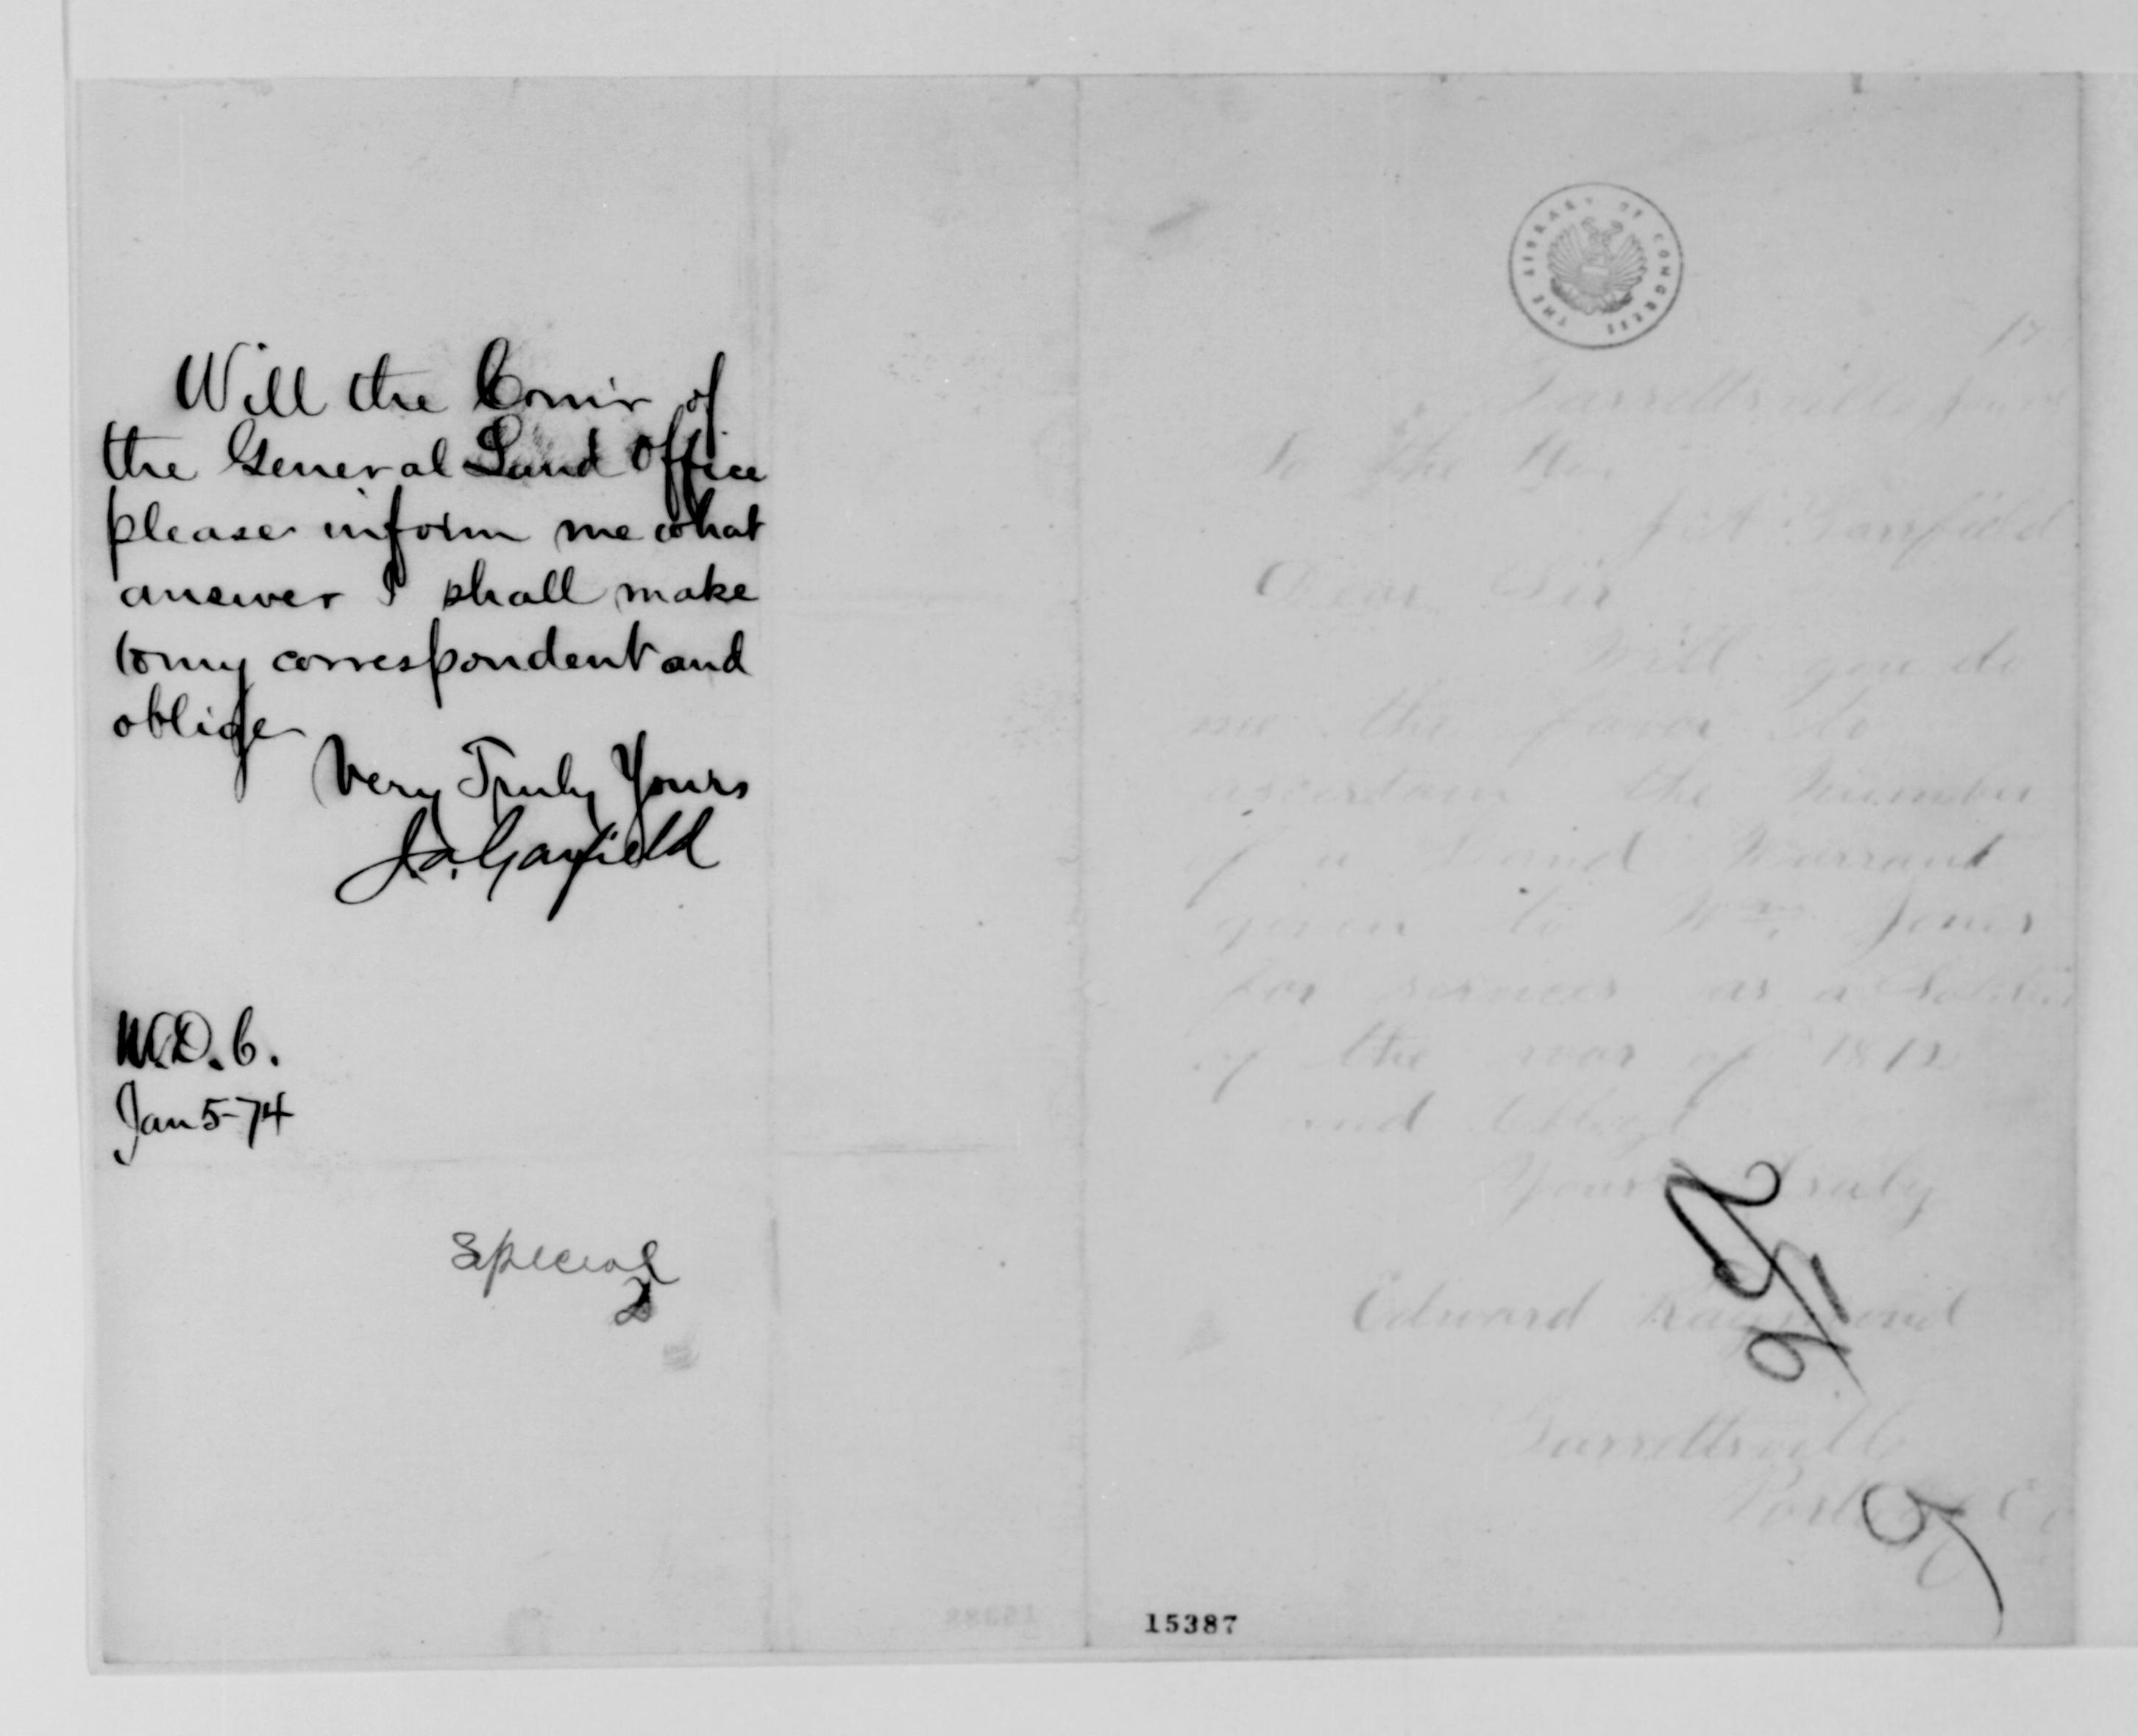 Will the Comr of
the General Land Office
please inform me what
answer I shall make
to my correspondent and
oblige
Very Truly Yours
J. A. Garfield
W.D.C.
Jan 5-74
Special
2
THE LIBRARY OF CONGRESS
Garrettsville
To the Hon
J A Garfield
Dear Sir
Will you do
me the favor to
ascertain the Number
of a Land Warrant
given to Wm Jones
for services as a Soldier
of the war of 1812
and Oblige
Yours Truly
Edward Raymond
Garrettsville
Portage Co
15387